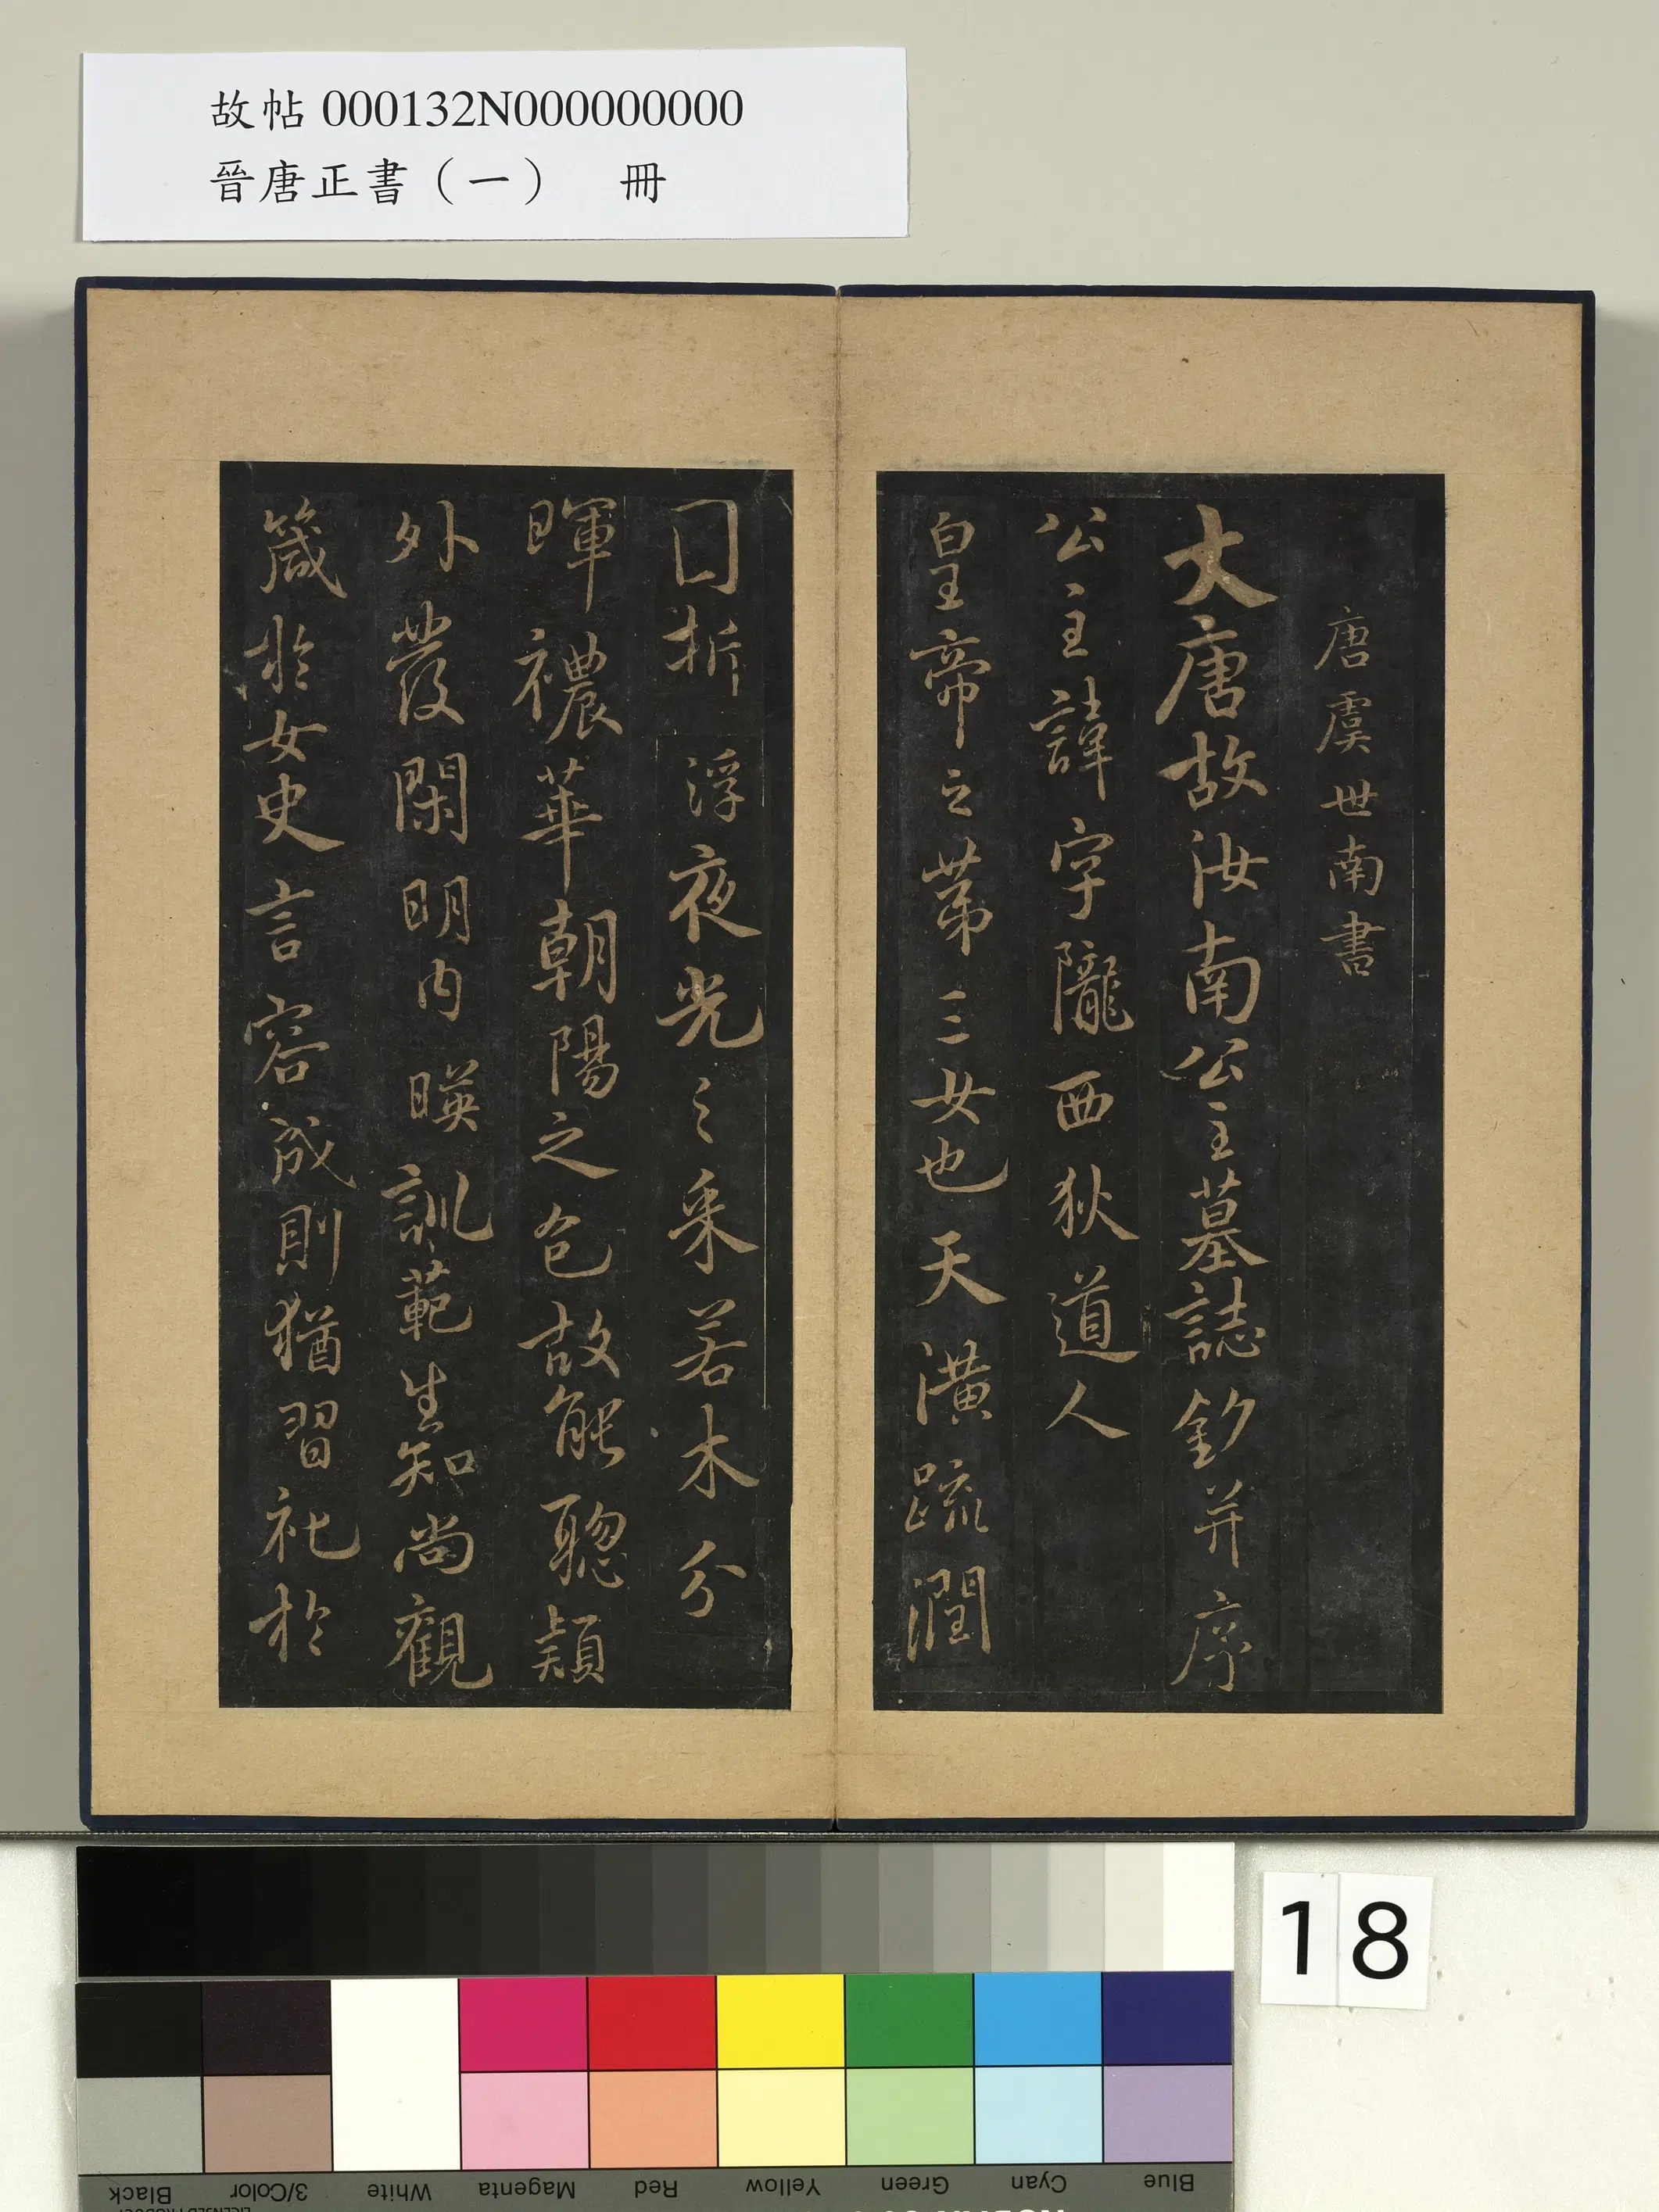 故帖 000132N000000000
晉唐正書（一） 冊
唐虞世南書
大唐故汝南公主墓誌銘并序
公主諱字隴西狄道人
皇帝之第三女也天潢疏潤
囗折浮夜光之采若木分
暉禯華朝陽之色故能聰穎
外發閑明內暎訓範生知尚觀
箴於女史言容成則猶習礼於
18
Black
3/Color
White
Magenta
Red
Yellow
Green
Cyan
Blue